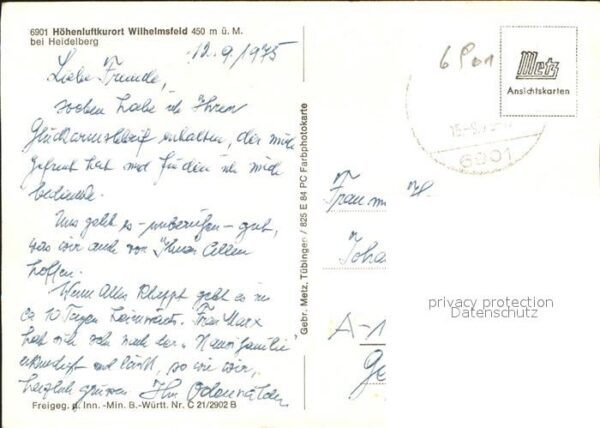 6901 Höhenluftkurort Wilhelmsfeld 450 m ü. M.
bei Heidelberg
12.9.1975
Liebe Freunde,
soeben habe ich Ihren
erhalten, der mich
gefreut hat und für den ich mich
bedanke.
Uns geht es - unberufen - gut,
was wir auch von Ihnen Allen
hoffen.
Wenn Alles klappt geht es in
ca 10 Tagen heimwärts. Frau Marx
hat sich sehr nach der
und läßt, so wie wir,
herzlich grüssen Ihre Odenwälder
Freigeg. d. Inn.-Min. B.-Württ. Nr. C 21/2902 B
Gebr. Metz, Tübingen / 825 E 84 PC Farbphotokarte
6
Metz
Ansichtskarten
6901
Frau
A-1
privacy protection
Datenschutz